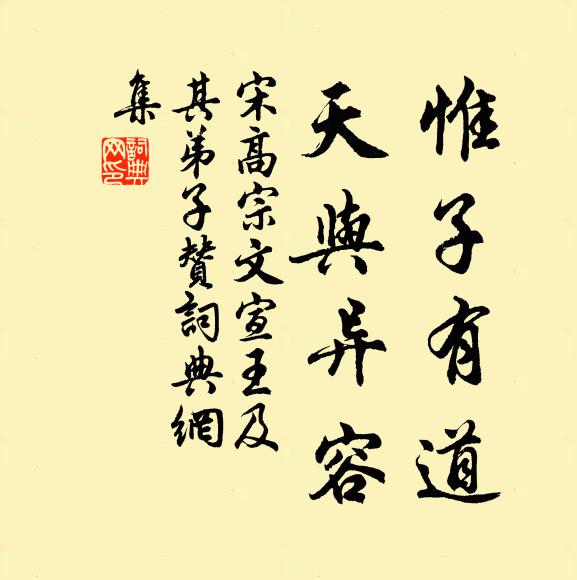 惟子有道
天與异容
宋高宗文宣王及
其弟子贊詞典網
集
詞典
网印